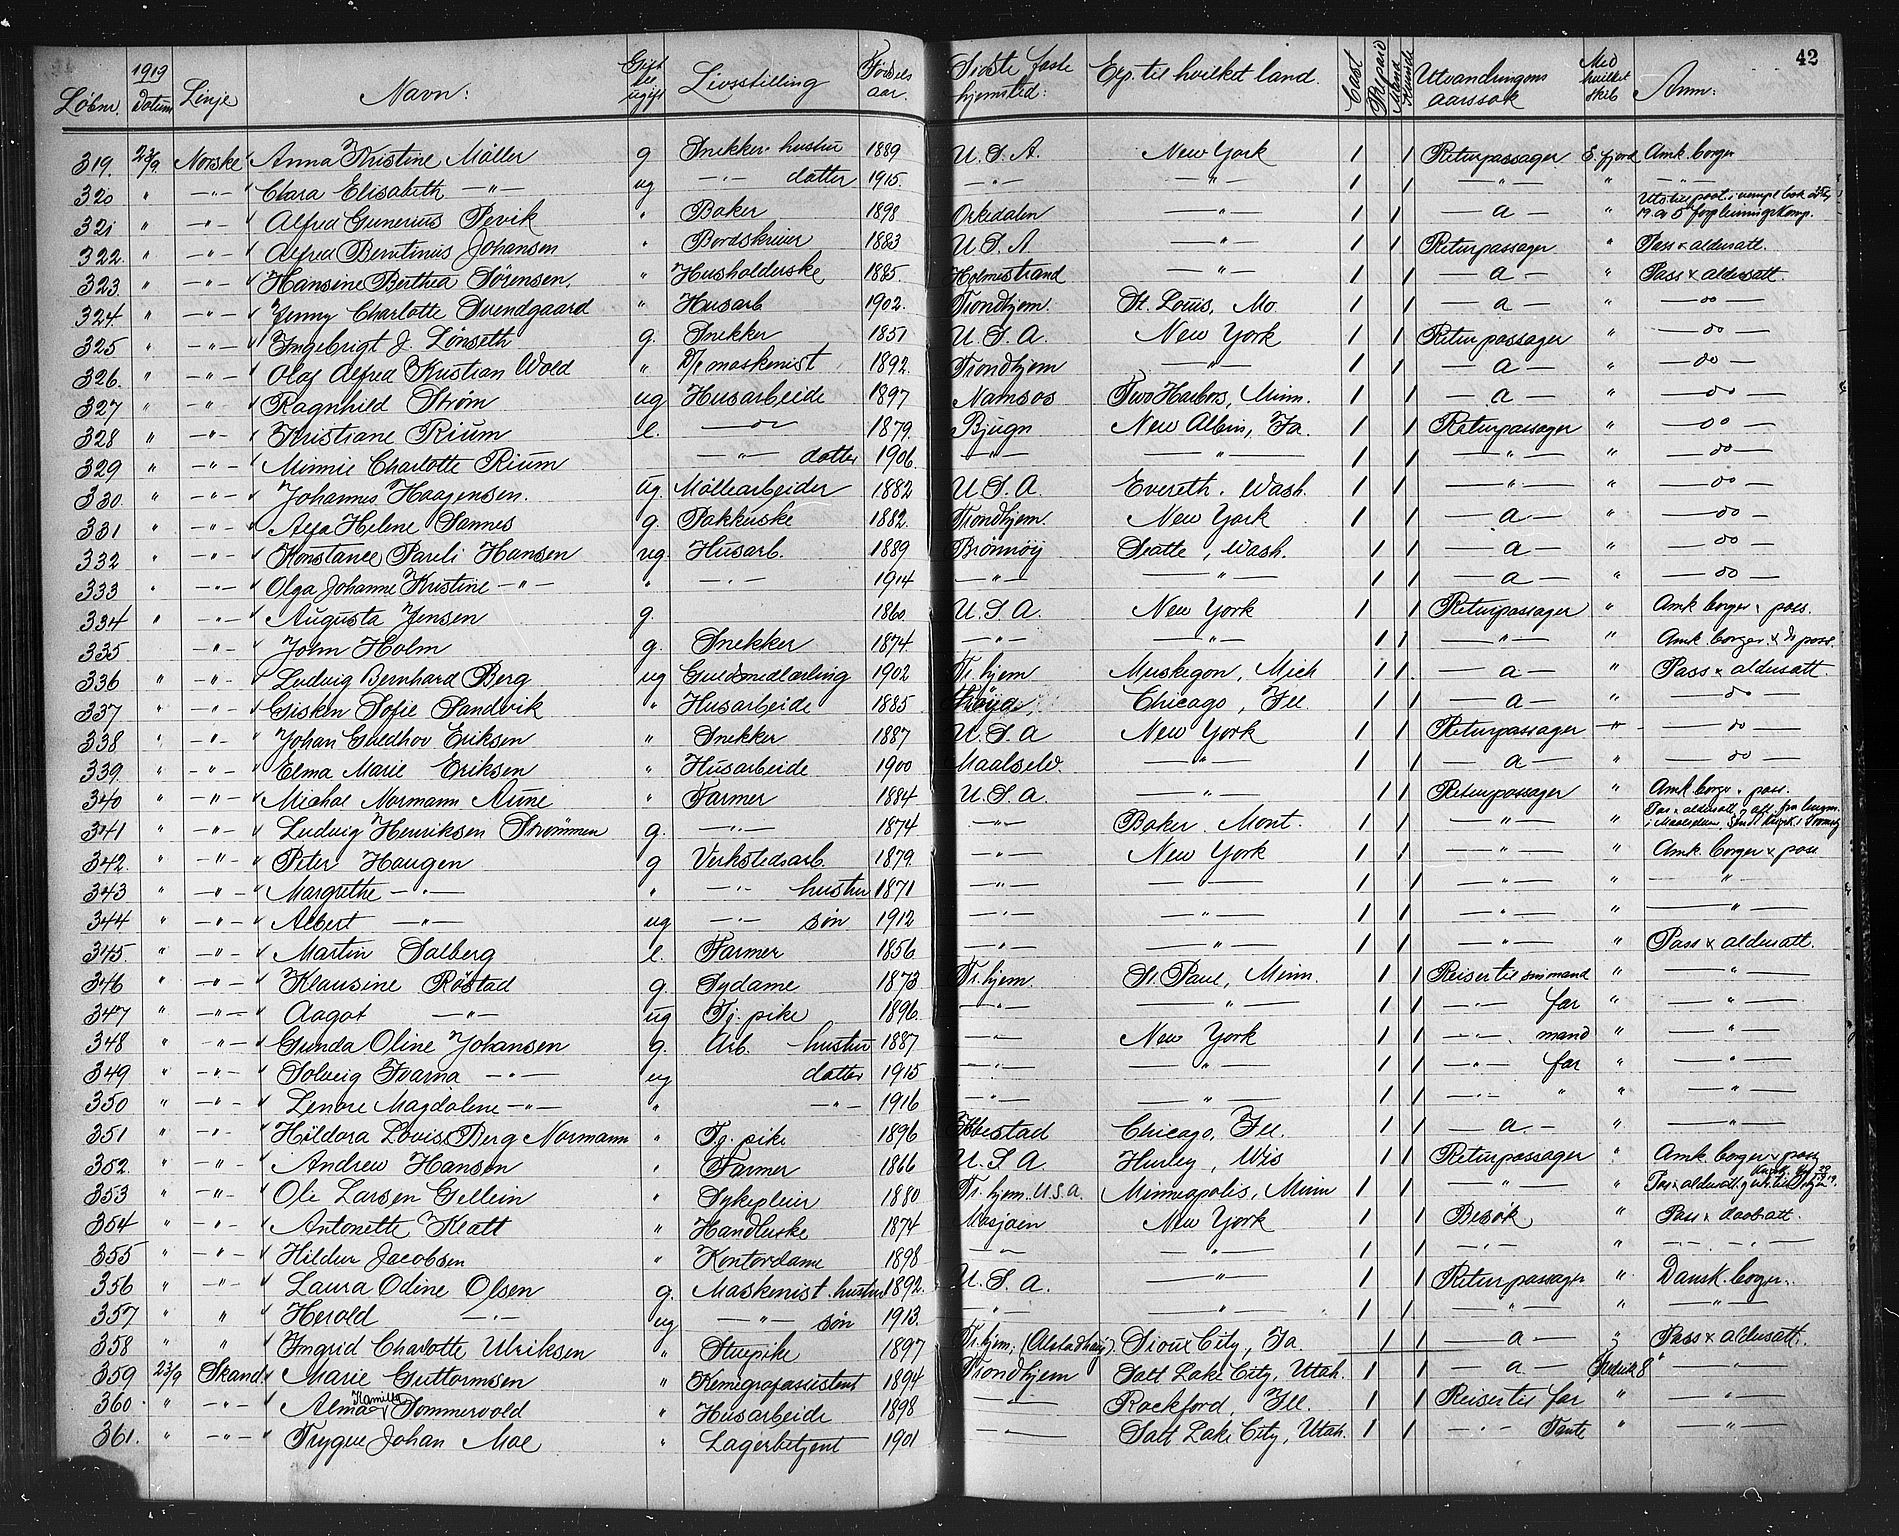 42
Løbnr. 1919 datum Linje Navn: Gift el. ugift Livsstilling Fødsels aar. Sidste faste hjemsted: Exp. til hvilket land. Cast Prepaid Mand Kvinde Utvandringens aarssak Med hvilket skib Anm:
319. 23/9 Norske Anna Kristine Møller g Snekker hustru 1889 U.S.A. New York 1 1 Returpassager E. fjord Amk. borger
320 " -"- Clara Elisabeth -"- ug -"- datter 1915. -"- -"- 1 1 -"- " -"-
321 " -"- Alfred Gunerius Pevik " Baker 1898 Orkedalen -"- 1 1 -a- "
322. " -"- Alfred Berntinus Johansen " Bordskriver 1883 U.S.A -"- 1 1 Returpassager " Pass & aldersatt.
323. " -"- Hansine Berthea Sørensen. " Husholderske 1885 Holmestrand -"- 1 1 -a- " Pass & aldersatt.
324. " -"- Jenny Charlotte Svendgaard " Husarb 1902. Trondhjem. St. Louis, Mo. 1 1 -a- " -do-
325 " -"- Ingebrigt J. Lønseth g. Snekker 1851 U.S.A. New York 1 1 Returpassager " -do-
326. " -"- Olaf Alfred Kristian Wold " D/p maskinist 1892. Trondhjem -"- 1 1 -a- " -do-
327 " -"- Ragnhild Strøm ug Husarbeide 1897 Namsos Two Harbors, Minn. 1 1 -a- " -do-
328 " -"- Kristiane Rium e. -do- 1879. Bjugn New Albin, Ia. 1 1 Returpassager " -do-
329 " -"- Minnie Charlotte Rium -"- datter 1906 -"- -"- 1 1 -"- " -do-
330 " -"- Johannes Haagensen. ug. Møllearbeider 1882 U.S.A. Evereth. Wash. 1 1 -"- " -do-
331 " -"- Helene Sannes g. Pakkerske 1882. Trondhjem. New York 1 1 -a- " -do-
332 " -"- Konstance Pareli Hansen ug Husarb. 1889 Brønnøy Seatte, Wash. 1 1 -a- " -do-
333 " -"- Olga Johanne Kristine -"- " -"- 1914 -"- -"- 1 1 -a- " -do-
334 " -"- Augusta Jensen g. 1860. U.S.A. New York 1 1 Returpassager " Amk borger & pass.
335 -"- John Holm g. Snekker 1874 -"- -"- 1 1 -"- " Amk. borger & pass.
336 " -"- Ludvig Bernhard Berg ug Guldsmedlærling 1902 Tr.hjem Muskegon, Mich 1 1 -a- " Pass & aldersatt.
337 " -"- Gisken Sofie Sandvik " Husarbeide 1885 Chicago, Ill 1 1 -a- " -do-
338 " -"- Johan Guldhov Eriksen " Snekker 1887 U.S.A New York 1 1 Returpassager -"- -do-
339. " -"- Elma Marie Eriksen " Husarbeide 1900 Maalselv. -"- 1 1 -a- " -do-
340 " -"- Michal Normann Aune " Farmer 1884 U.S.A. -"- 1 1 Returpassager " Amk borger & pass.
341 " -"- Ludvig Henriksen Strømmen g. -"- 1874 -"- Baker. Mont. 1 1 -"- " Pas & aldersatt
342. " -"- Peter Haugen g Verkstedsarb. 1879. -"- New York 1 1 -"- " Amk. borger & pass
343 " -"- Margrethe -"- " -"- hustru 1871 -"- -"- 1 1 -"- " -"-
344 " -"- Albert -"- ug -"- søn 1912 -"- -"- 1 1 -"- " -"-
345. " -"- Martin Salberg e. Farmer 1856 -"- -"- 1 1 -"- " Pass & aldersatt.
346 " -"- Klausine Røstad g. Sydame 1873 Tr.hjem. St. Paul, Minn. 1 1 Reiser til sin mand " -"-
347 " -"- Aagot -"- ug Tj. pike 1896. -"- -"- 1 1 -"- far " -"-
348 " -"- Gunda Oline Johansen g. Arb. hustru 1887 -"- New York 1 1 -"- mand " -"-
349 " -"- Solveig Ivarna -"- ug datter 1915 -"- -"- 1 1 -"- far " -"-
350 " -"- Lenore Magdalene -"- " -"- 1916 -"- -"- 1 1 -"- " " -"-
351 " -"- Hildora Lovise Berg Normann " Tj. pike 1896 Ibbestad Chicago, Ill. 1 1 -a- " -"-
352. " -"- Andrew Hansen " Farmer 1866 U.S.A. Hurley, Wis 1 1 Returpassager " Amk. borger & pass
353 " -"- Ole Larsen Gellein " Sykepleier 1880 Tr.hjem. U.S.A. Minneapolis, Minn 1 1 -"- " Pas & aldersatt.
354 " -"- Antonette Klatt " Handlerske 1874 Mosjøen New York 1 1 Besøk " Pass & daabatt.
355 " -"- Hildur Jacobsen " Kontordame 1898 -"- -"- 1 1 -"- -"-
356 " -"- Laura Odine Olsen g. Maskinist. hustru 1892. U.S.A. -"- 1 1 Returpassager " Dansk borger.
357 " " Herold -"- ug -"- søn 1913. -"- -"- 1 1 -"- " -"-
358 " " Ingrid Charlotte Ulriksen " Stuepike 1897 Tr.hjem, (Alstadhaug). Sioux City, Ia. 1 1 -a- " Pass & aldersatt.
359 23/9 Skand. Marie Guttormsen " Kemigrafassistent 1894 Trondhjem Salt Lake City, Utah. 1 1 -a- Fredrik 8" -"-
360. " -"- Alma Kamilla Sommervold " Husarbeide 1898 -"- Rockford, Ill. 1 1 Reiser til far " -"-
361. " -"- Trygve Johan Moe " Lagerbetjent 1901 -"- Salt Lake City, Utah. 1 1 -"- Tante " -"-